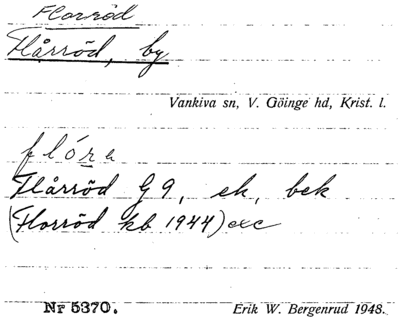 Florröd
Flårröd, by
Vankiva sn, V. Göinge hd, Krist. l.
flóra
Flårröd G9, ek, bek
(Florröd kb 1944) exc
Nr 5370. Erik W. Bergenrud 1948.